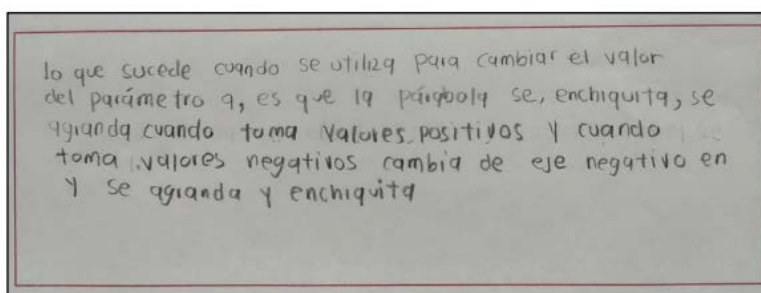 lo que sucede cuando se utiliza para cambiar el valor
del parámetro a, es que la parabola se, enchiquita, se
agranda cuando toma valores positivos y cuando
toma valores negativos cambia de eje negativo en
y se agranda y enchiquita